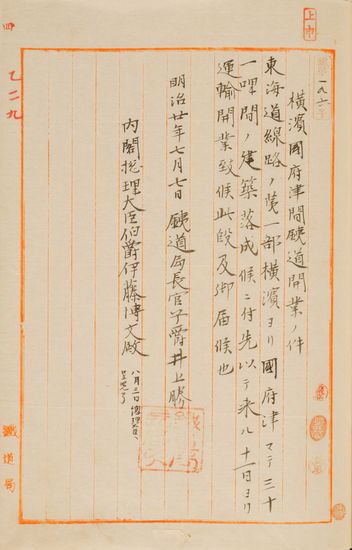 上申
一九六
横濱國府津間鐵道開業ノ件
東海道線路ノ第一部横濱ヨリ國府津マテ三十
一哩間ノ建築落成候ニ付先以テ来ル十一日ヨリ
運輸開業致候此段及御届候也
明治廿年七月七日 鐵道局長官子爵井上勝
内閣総理大臣伯爵伊藤博文殿
八月三日総理
四
乙二九
鐵道局